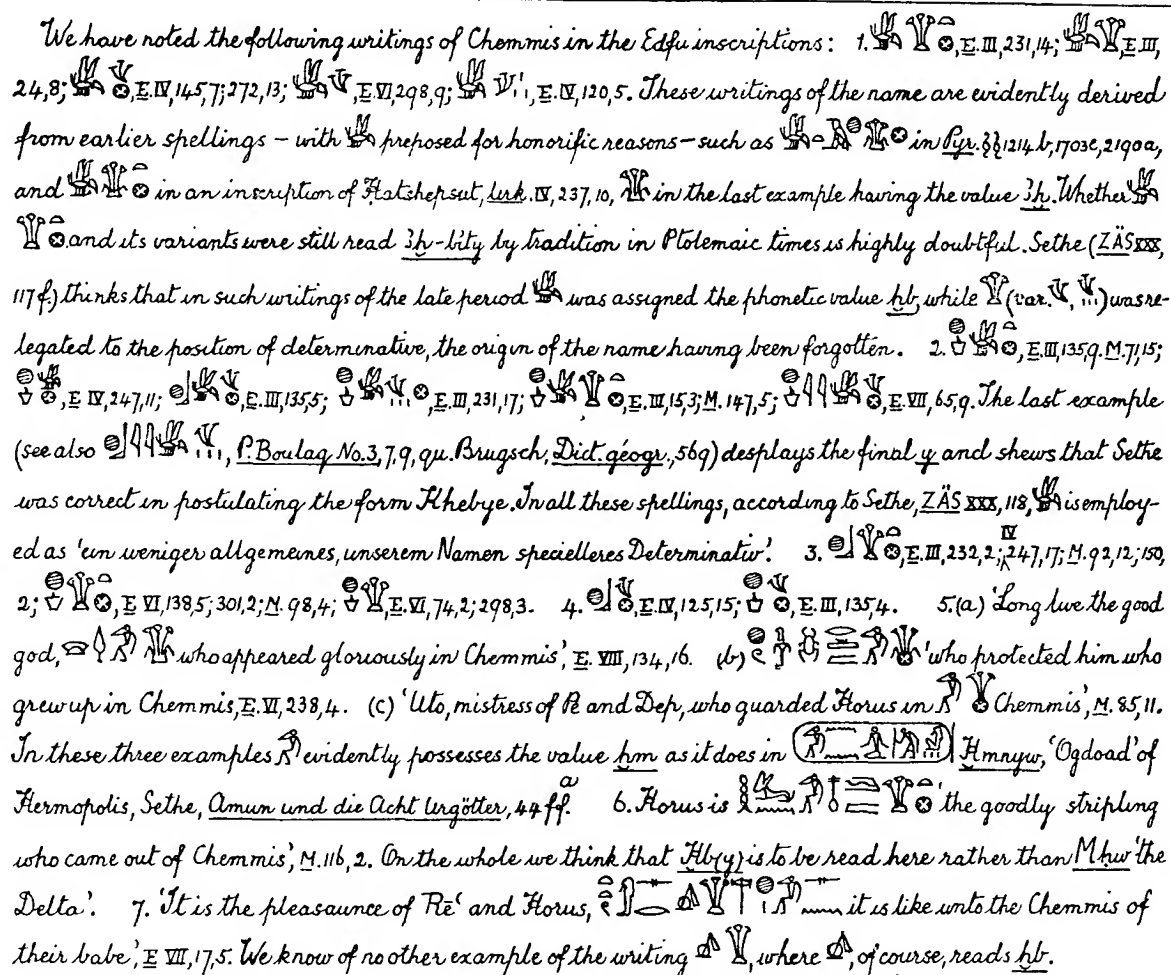 We have noted the following writings of Chemmis in the Edfu inscriptions: 1. , E. III, 231, 14; , E. III,
24, 8; , E. IV, 145, 7; 272, 13; , E. VI, 298, 9; , E. IV, 120, 5. These writings of the name are evidently derived
from earlier spellings – with preposed for honorific reasons – such as in Pyr. §§ 1214 b, 1703 c, 2190 a,
and in an inscription of Hatshepsut, Urk. IV, 237, 10, in the last example having the value ꜣḫ. Whether
and its variants were still read ꜣḫ-bity by tradition in Ptolemaic times is highly doubtful. Sethe (ZÄS XXX,
117 f.) thinks that in such writings of the late period was assigned the phonetic value ḫb, while (var. , ) was re-
legated to the position of determinative, the origin of the name having been forgotten. 2. , E. III, 135, 9. M. 71, 15;
, E IV, 247, 11; , E. III, 135, 5; , E. III, 231, 17; , E. III, 15, 3; M. 147, 5; , E. VII, 65, 9. The last example
(see also , P. Boulaq No. 3, 7, 9, qu. Brugsch, Dict. géogr., 569) desplays the final y and shews that Sethe
was correct in postulating the form Khebye. In all these spellings, according to Sethe, ZÄS XXX, 118, is employ-
ed as 'ein weniger allgemeines, unserem Namen specielleres Determinativ'. 3. , E. III, 232, 2; IV 247, 17; M. 92, 12; 150,
2; , E VI, 138, 5; 301, 2; M. 98, 4; , E. VI, 74, 2; 298, 3. 4. , E. IV, 125, 15; , E. III, 135, 4. 5. (a) 'Long live the good
god, who appeared gloriously in Chemmis', E. VIII, 134, 16. (b) 'who protected him who
grew up in Chemmis, E. VI, 238, 4. (c) 'Uto, mistress of Pe and Dep, who guarded Horus in Chemmis', M. 85, 11.
In these three examples evidently possesses the value ḫm as it does in Ḫmnyw, 'Ogdoad' of
Hermopolis, Sethe, Amun und die Acht Urgötter, 44 ff. a 6. Horus is 'the goodly stripling
who came out of Chemmis', M. 116, 2. On the whole we think that Ḫb(y) is to be read here rather than Mḥw 'the
Delta'. 7. 'It is the pleasaunce of Rēʿ and Horus, it is like unto the Chemmis of
their babe', E VII, 17, 5. We know of no other example of the writing , where , of course, reads ḫb.